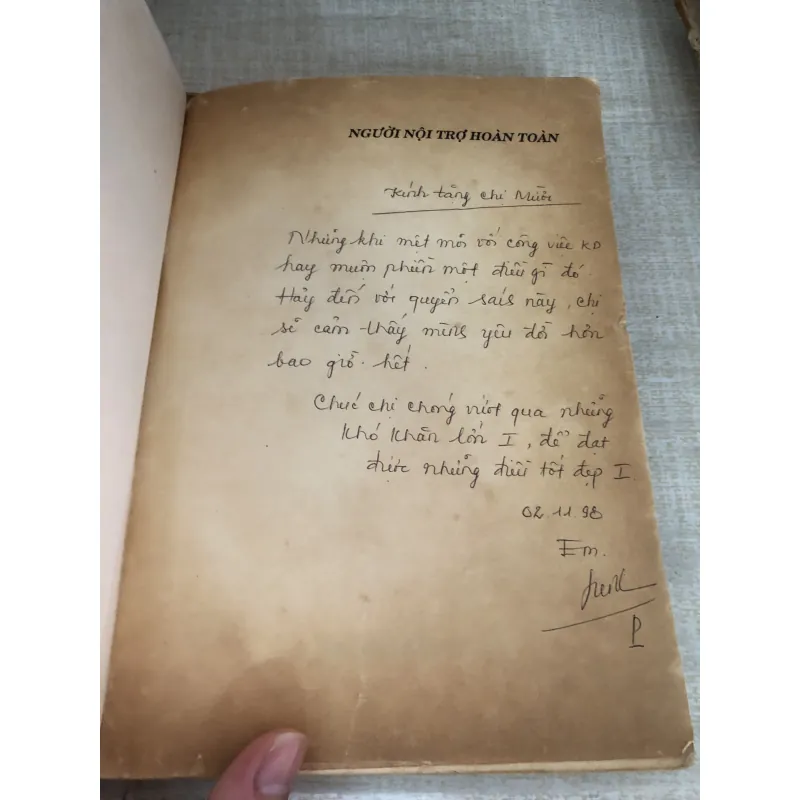 NGƯỜI NỘI TRỢ HOÀN TOÀN
Kính tặng chị Mười
Những khi mệt mỏi với công việc KD
hay muộn phiền một điều gì đó
Hãy đến với quyển sách này, chị
sẽ cảm thấy mình yêu đời hơn
bao giờ hết.
Chúc chị chóng vượt qua những
khó khăn lớn I, để đạt
được những điều tốt đẹp I.
02.11.98
Em.